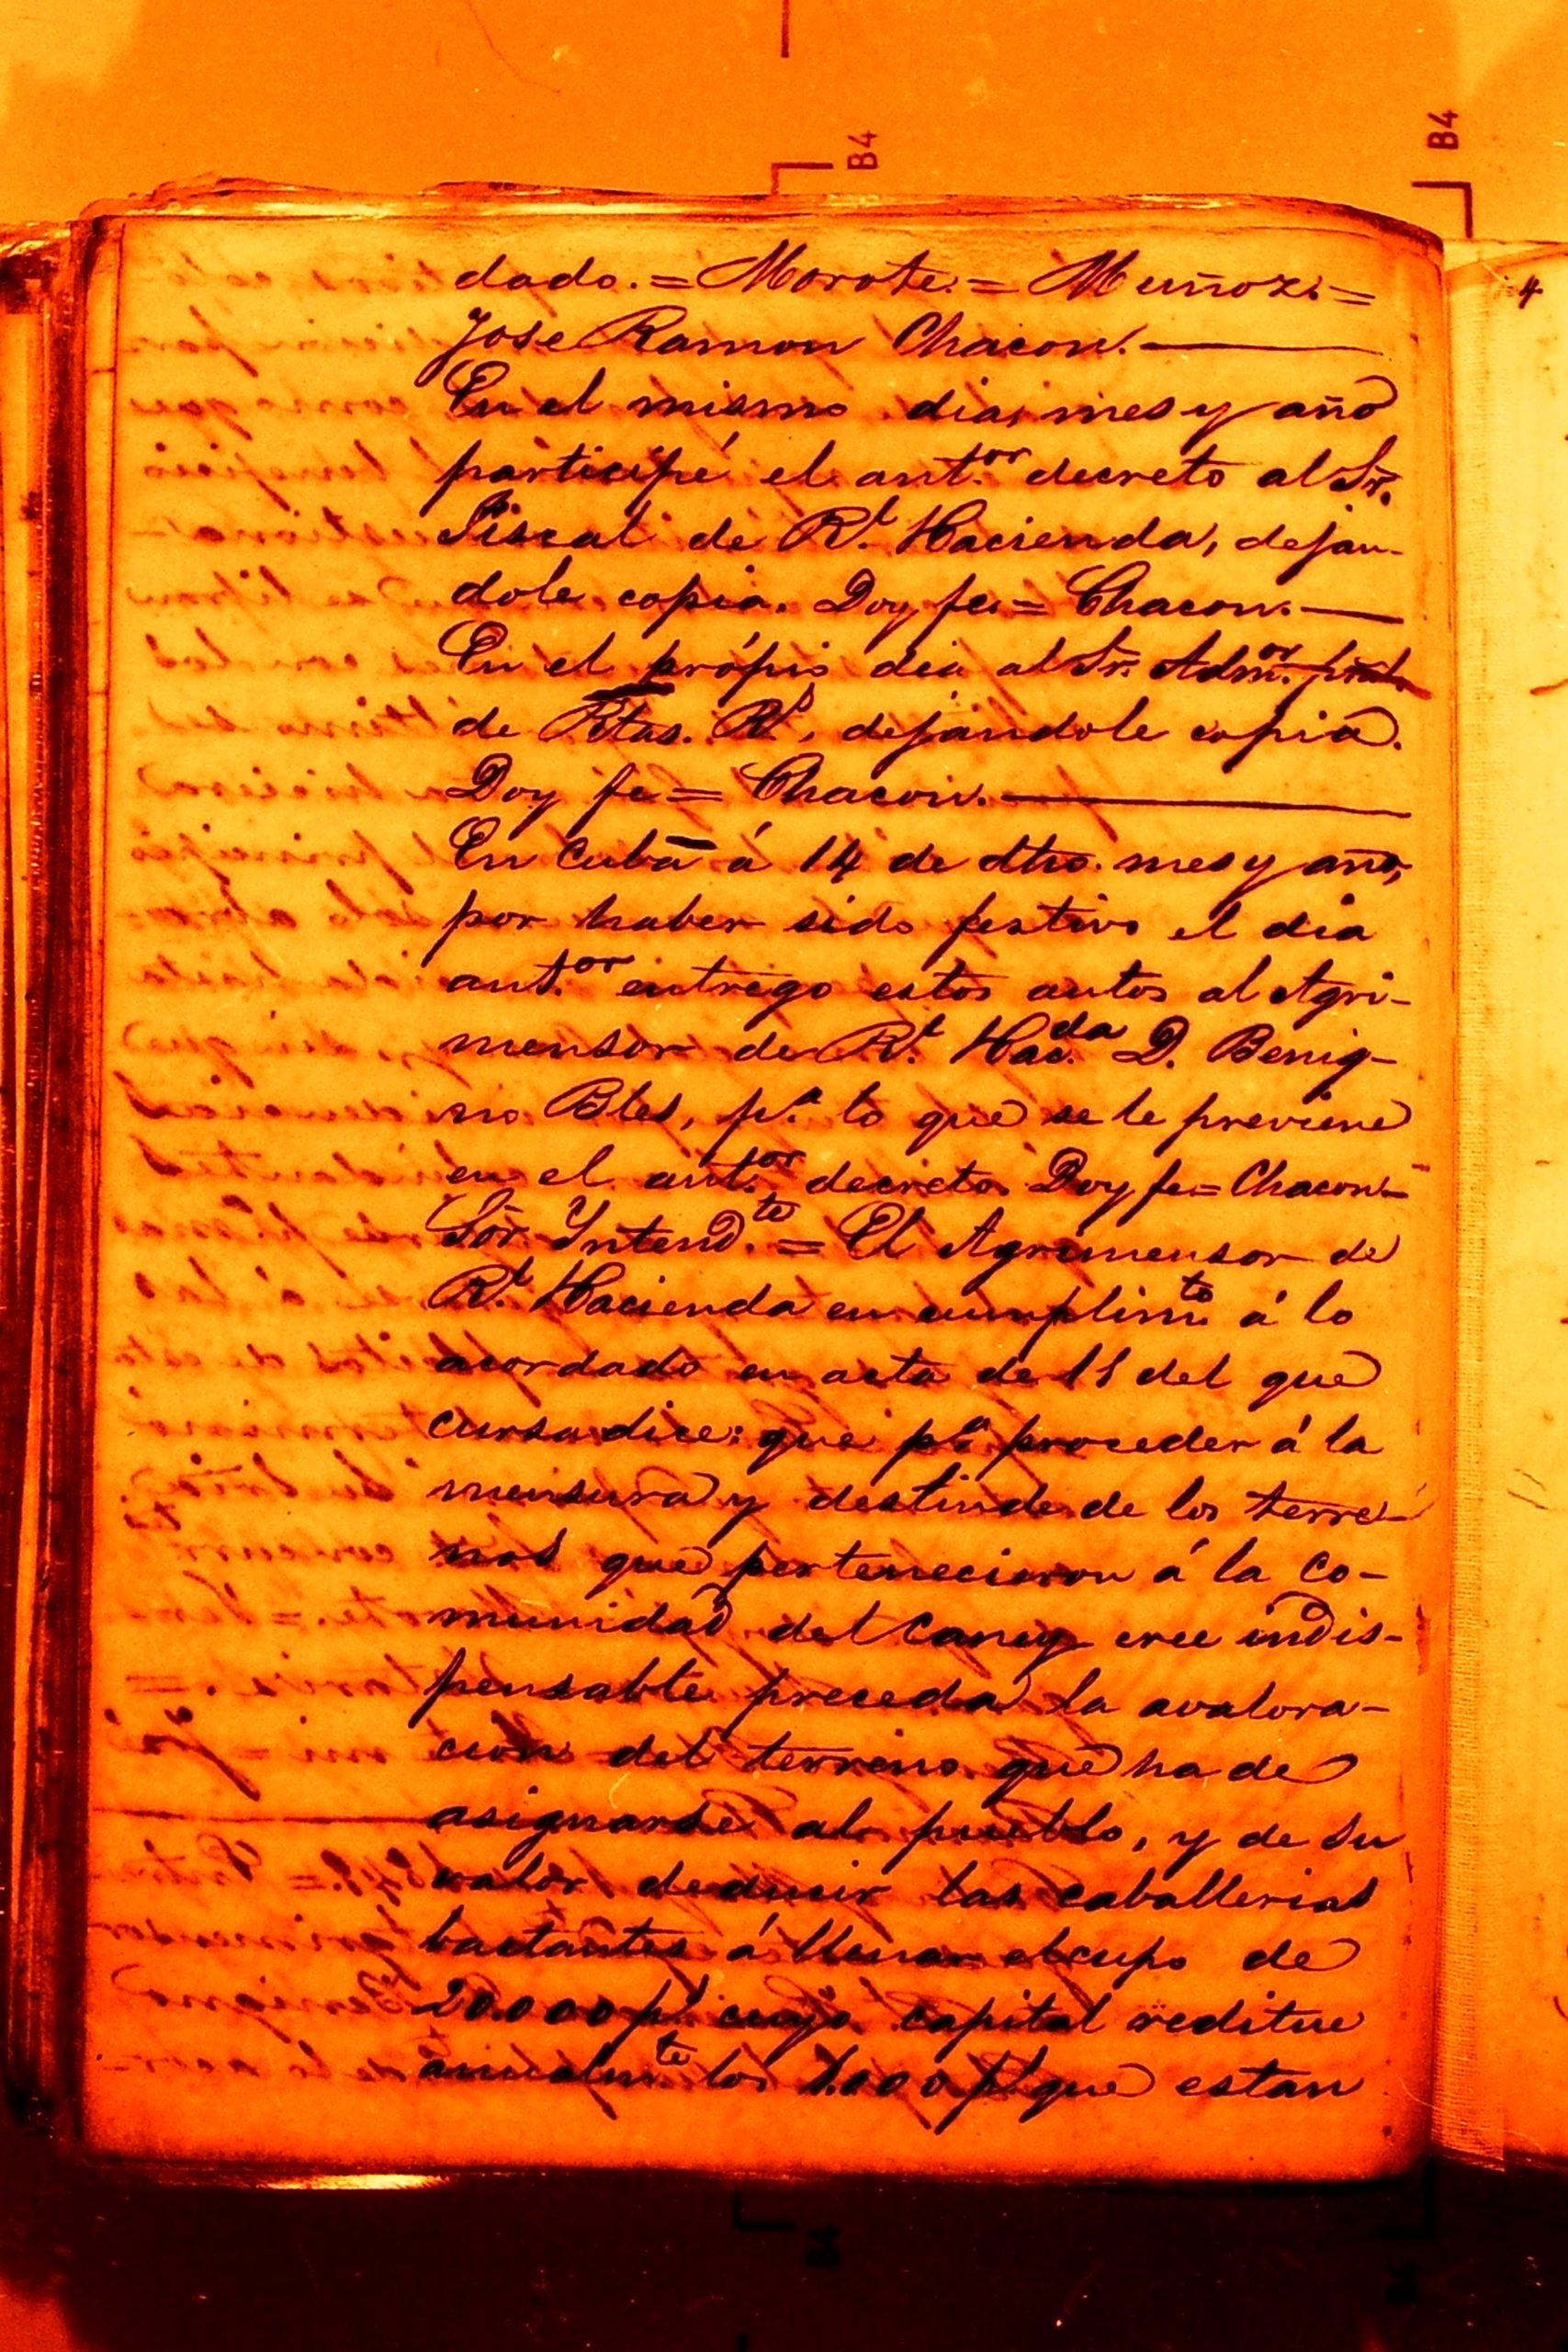 B4
B4
4
dado. = Morote. = Muñoz. =
Jose Ramon Chacon. —
En el mismo dia, mes y año
participé el ant.or decreto al Sr.
Fiscal de R.l Hacienda, dejan-
dole copia. Doy fe. = Chacon. —
En el própio dia al Sr. Adm.or pral.
de Rtas. R.s, dejándole copia.
Doy fe = Chacon. —
En Cuba á 14 de dho. mes y año,
por haber sido festivo el dia
ant.or entrego estos autos al Agri-
mensor de R.l Hac.da D. Benig-
no Btes, p.a lo que se le previene
en el ant.or decreto. Doy fe = Chacon. —
Sor. Yntend.te = El Agrimensor de
R.l Hacienda en cumplim.to á lo
acordado en acta de 11 del que
cursa dice: que p.a proceder á la
mensura y deslinde de los terre-
nos que pertenecieron á la co-
munidad del Caney cree indis-
pensable preceda la avalora-
cion del terreno que ha de
asignarse al pueblo, y de su
valor deducir las caballerias
bastantes á llenar el cupo de
20.000 p.s cuyo capital reditue
anualm.te los 1.000 p.s que estan